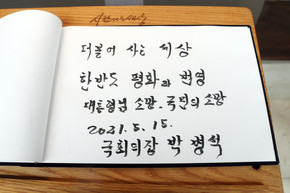 더불어 사는 세상
한반도 평화와 번영
대통령님 소망. 국민의 소망
2021. 5. 15.
국회의장 박병석